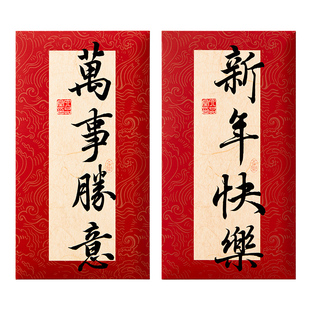 萬事勝意
新年快樂